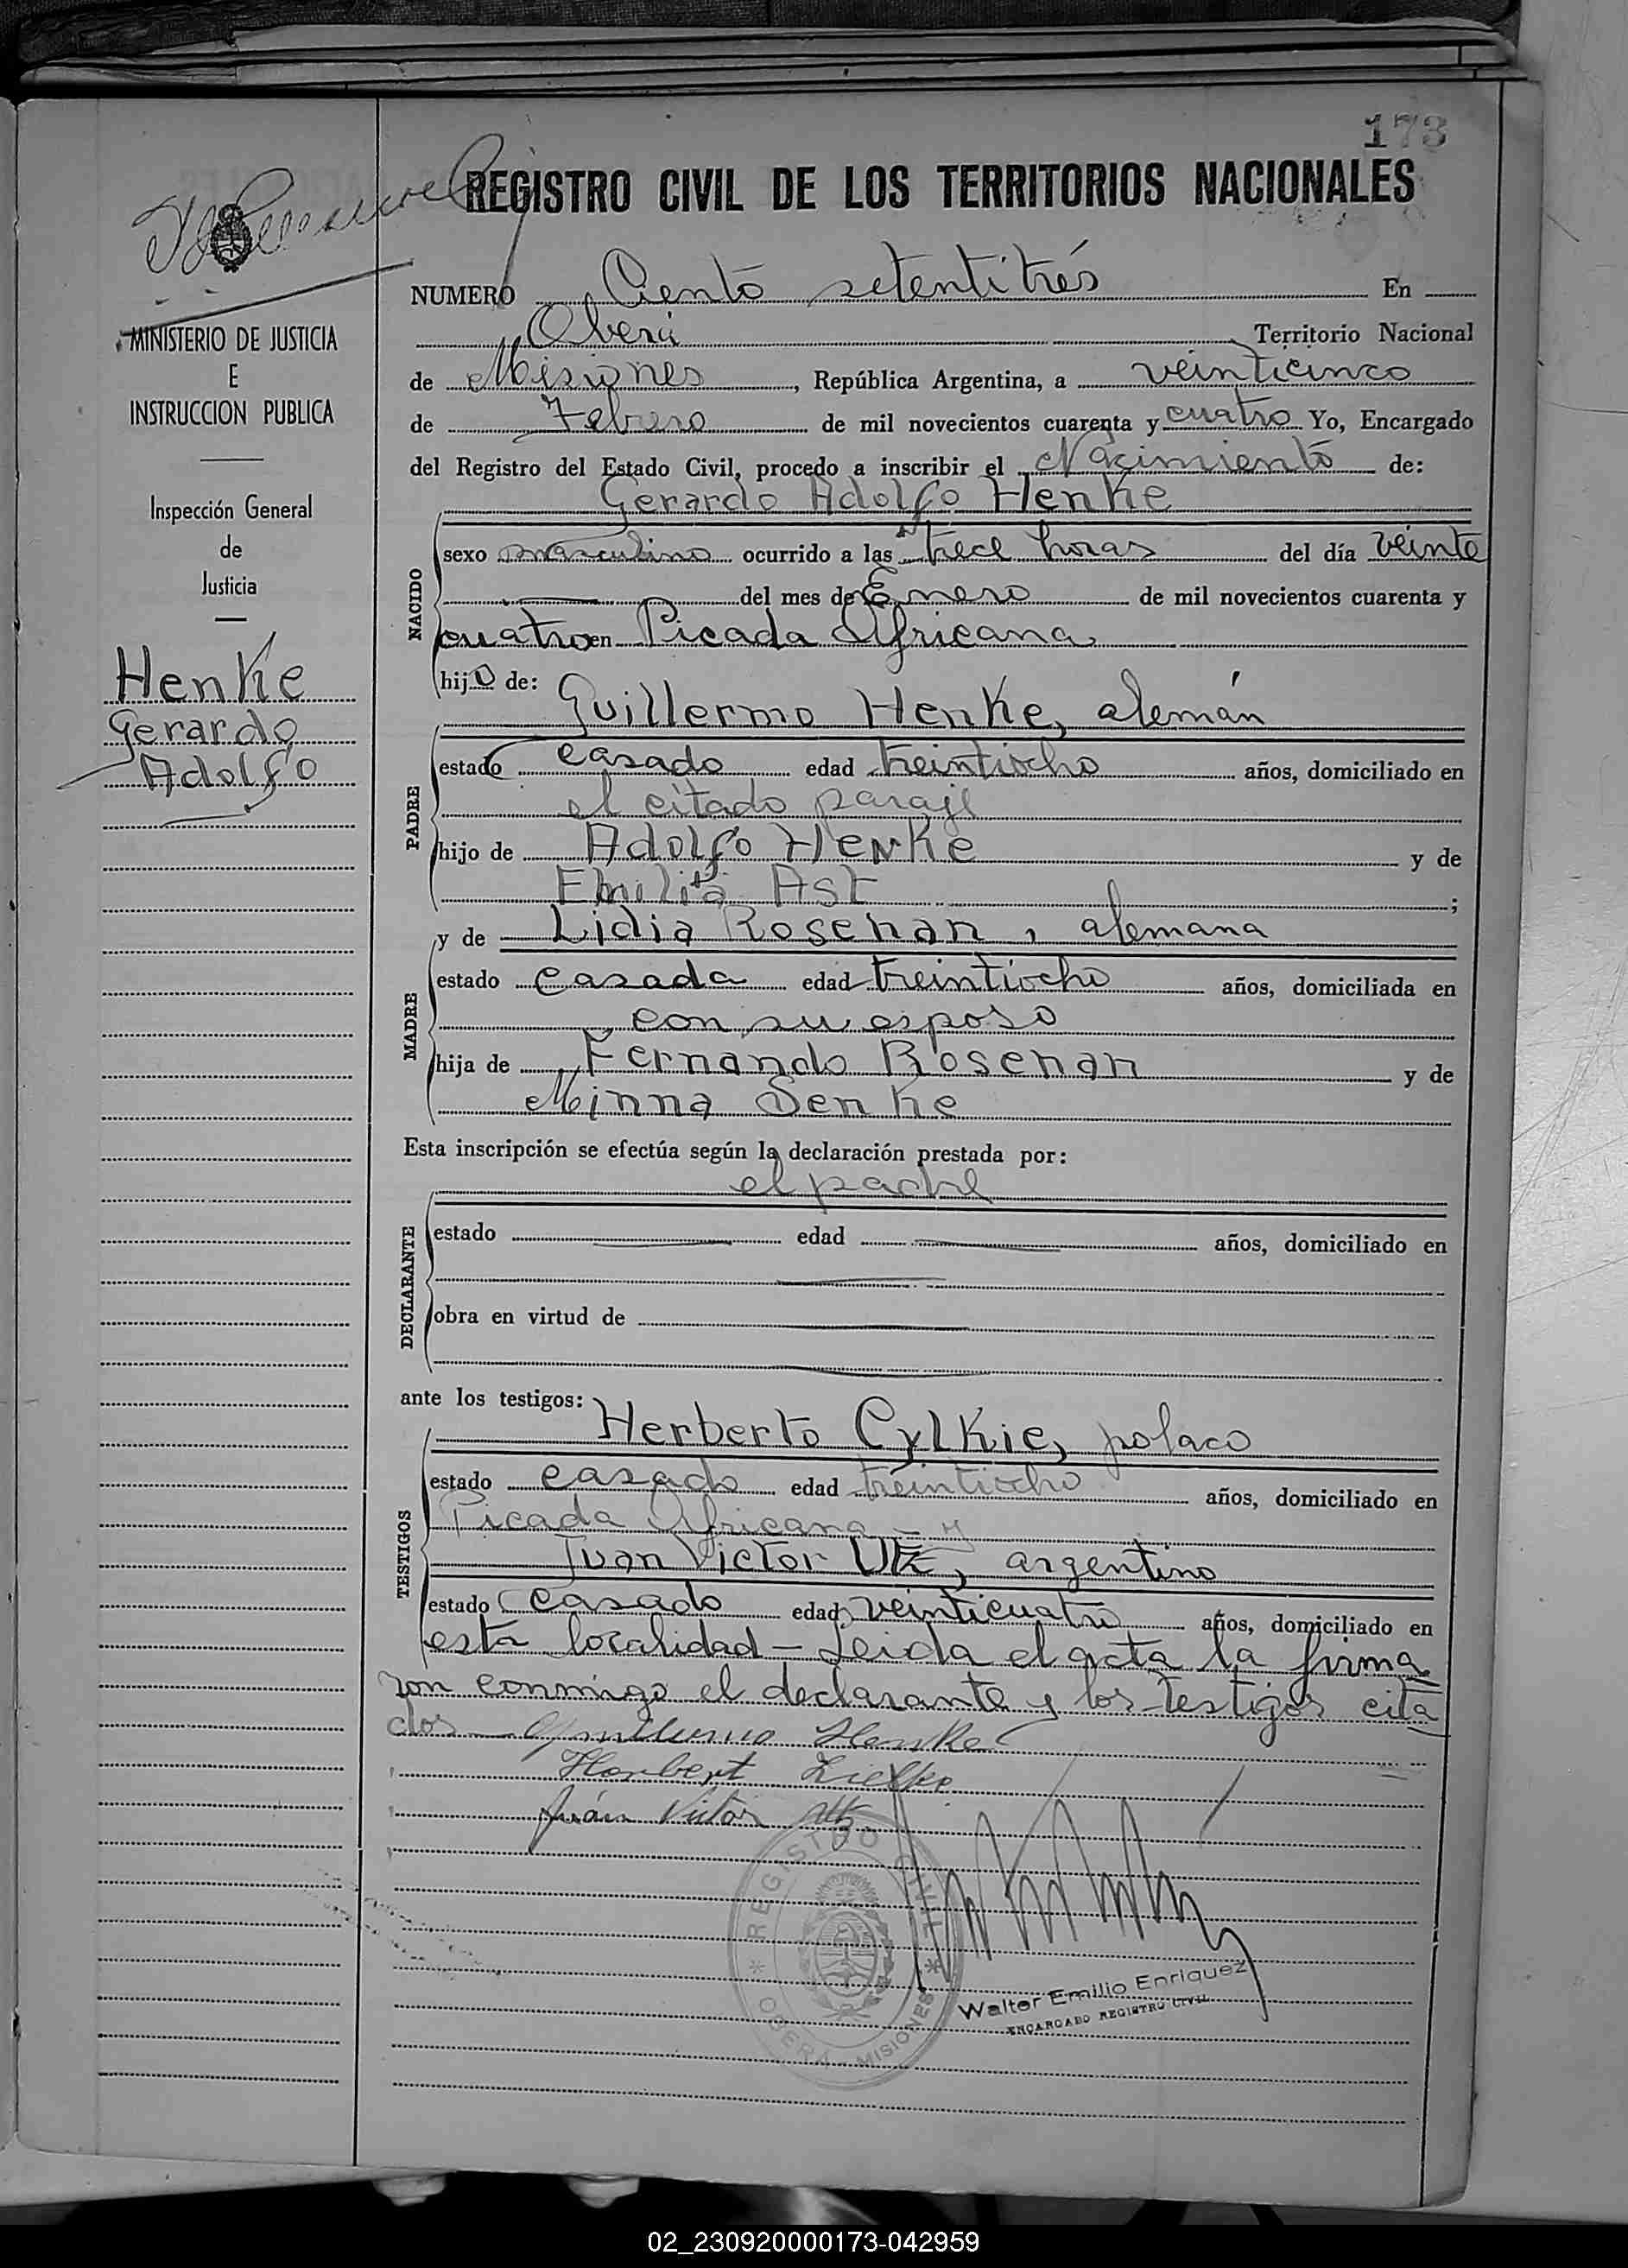 173
REGISTRO CIVIL DE LOS TERRITORIOS NACIONALES
MINISTERIO DE JUSTICIA
E
INSTRUCCION PUBLICA
Inspección General
de
Justicia
Henke
Gerardo
Adolfo
NUMERO Ciento setentitrés En
Oberá Territorio Nacional
de Misiones, República Argentina, a veinticinco
de Febrero de mil novecientos cuarenta y cuatro Yo, Encargado
del Registro del Estado Civil, procedo a inscribir el Nacimiento de:
Gerardo Adolfo Henke
NACIDO
sexo masculino ocurrido a las trece horas del día veinte
del mes de Enero de mil novecientos cuarenta y
cuatro en Picada Africana
hijo de:
Guillermo Henke, alemán
PADRE
estado casado edad treintiocho años, domiciliado en
el citado paraje
hijo de Adolfo Henke y de
Emilia Ast ;
y de Lidia Rosenan, alemana
MADRE
estado casada edad treintiocho años, domiciliada en
con su esposo
hija de Fernando Rosenan y de
Minna Senke
Esta inscripción se efectúa según la declaración prestada por:
el padre
DECLARANTE
estado edad años, domiciliado en
obra en virtud de
ante los testigos:
Herberto Cylkie, polaco
TESTIGOS
estado casado edad treintiocho años, domiciliado en
Picada Africana - y
Juan Victor Utz, argentino
estado casado edad veinticuatro años, domiciliado en
esta localidad - Leida el acta la firma
ron conmigo el declarante y los testigos cita
dos Guillermo Henke
Herbert Zielke
Juán Victor Utz
REGISTRO CIVIL
OBERÁ - MISIONES
Walter Emilio Enriquez
ENCARGADO REGISTRO CIVIL
02_230920000173-042959